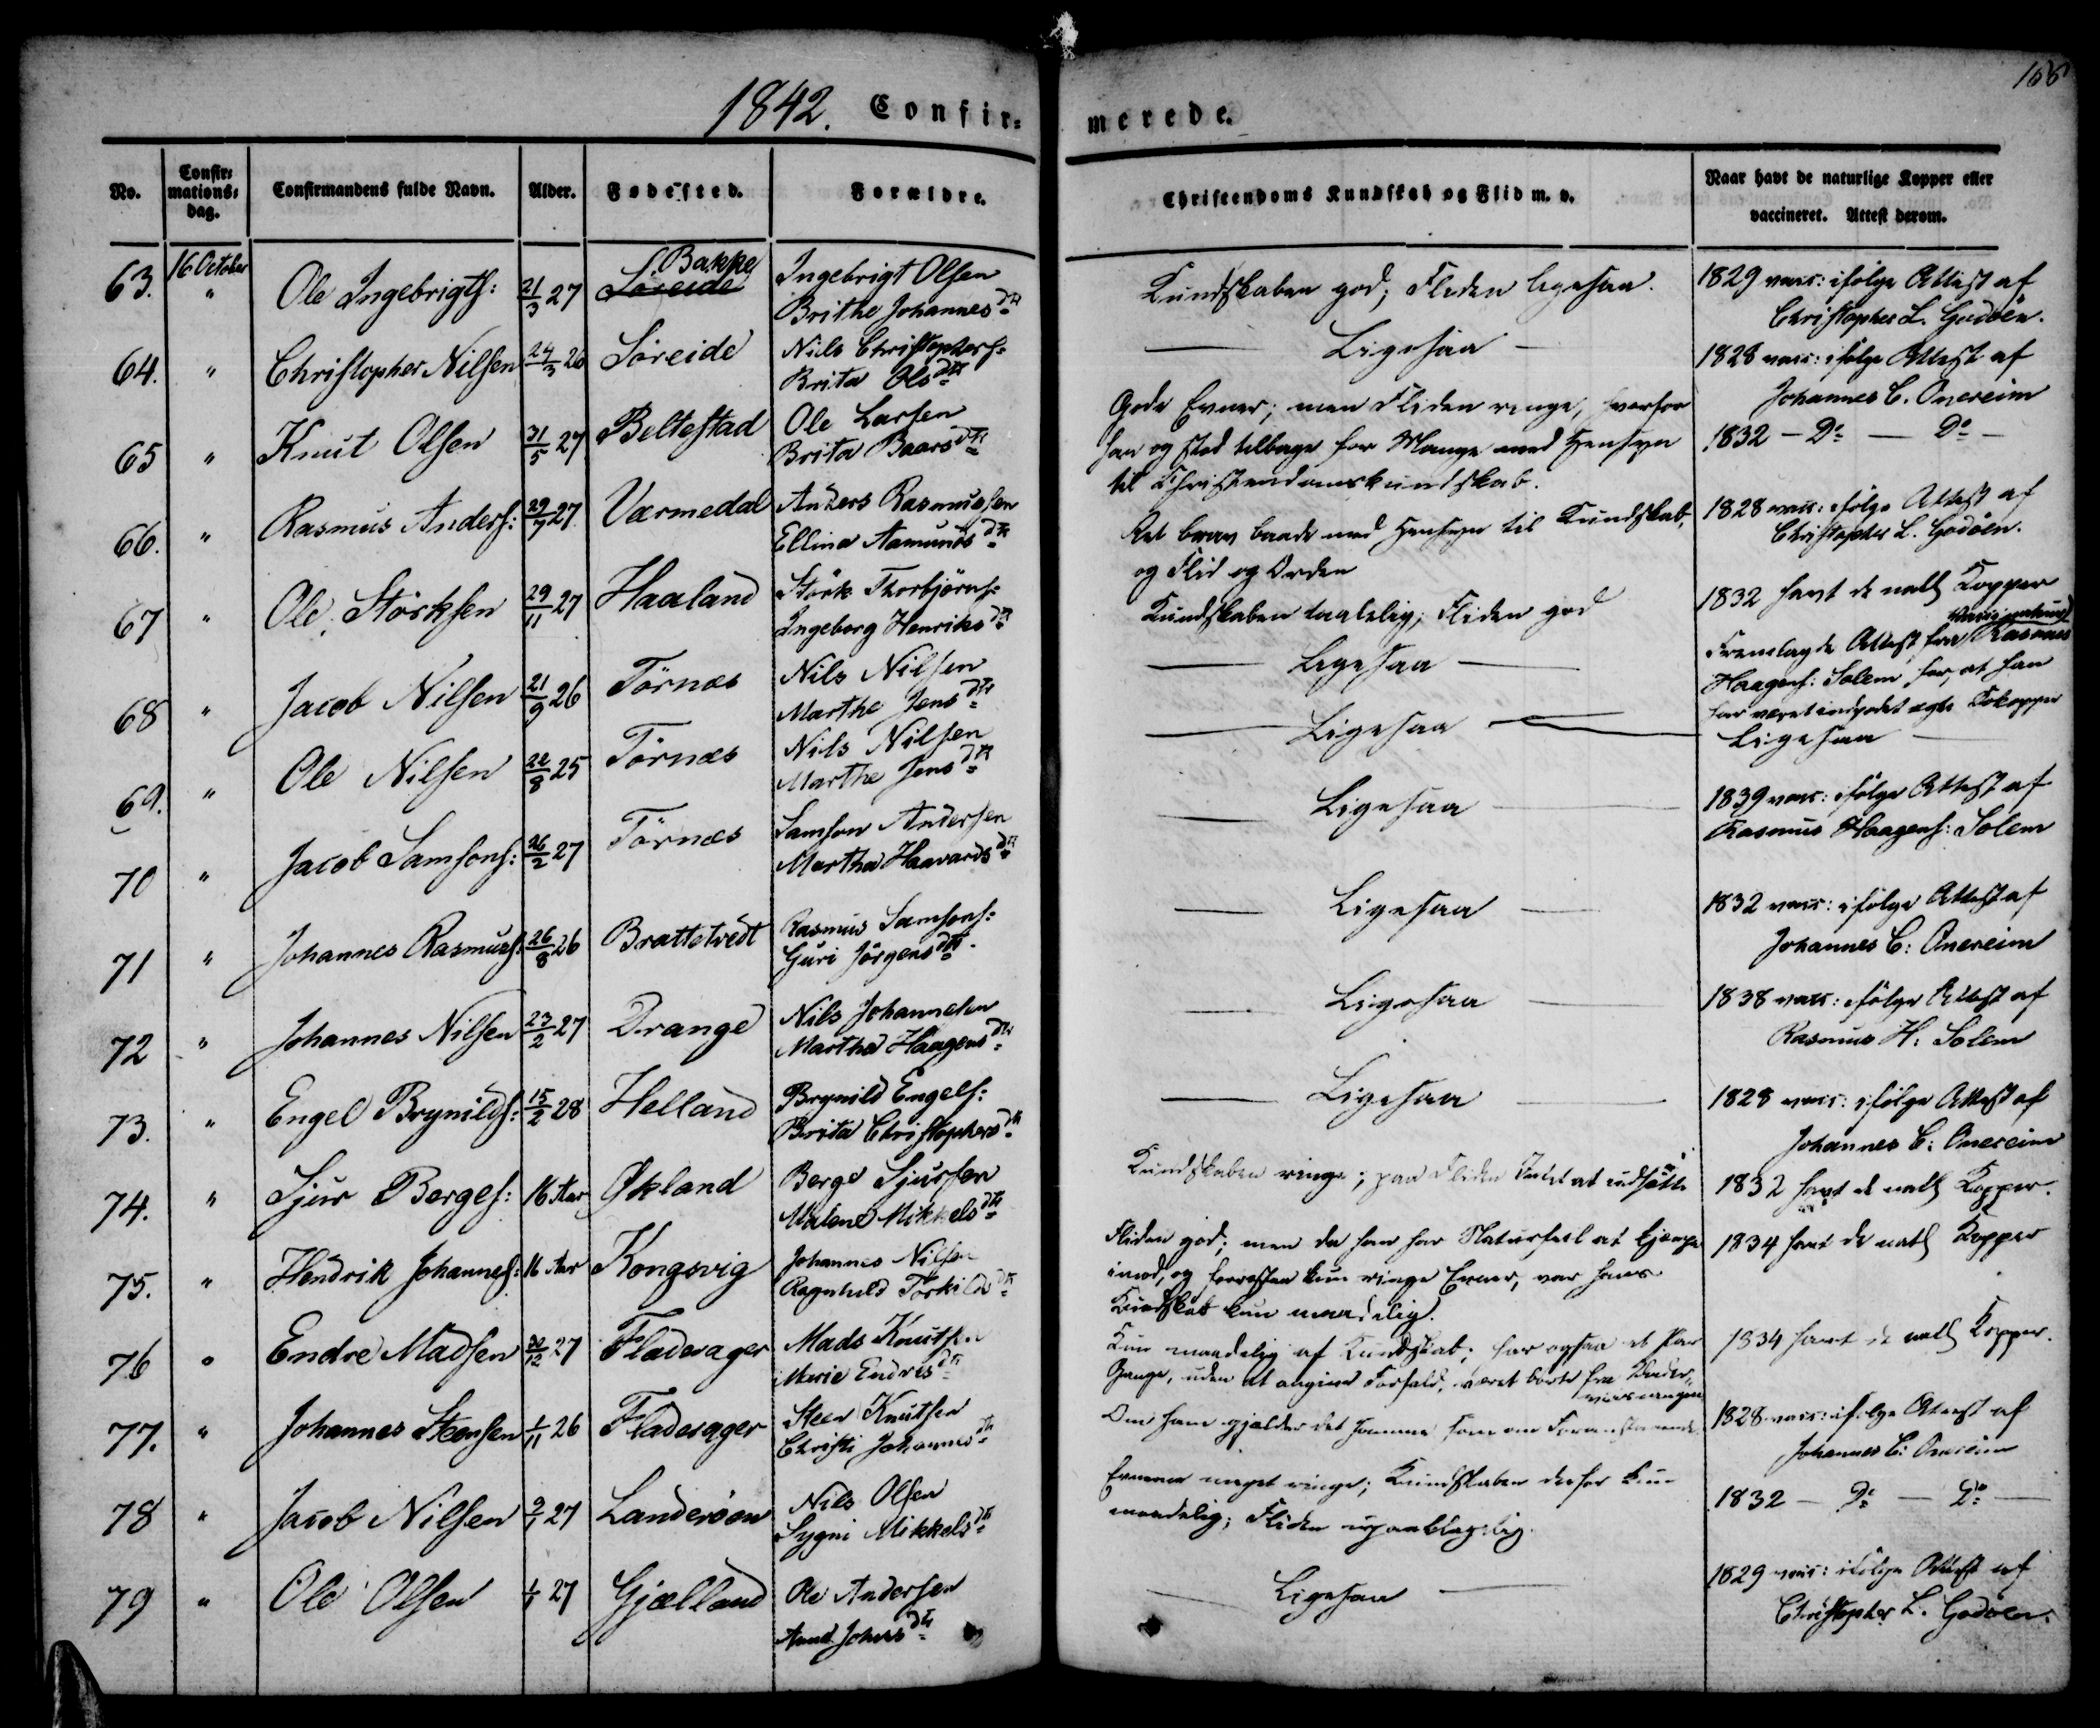 1842. Confir-
merede.
168
No.
Confir-
mations-
dag.
Confirmandens fulde Navn.
Alder.
Fødested.
Forældre.
Christendoms Kundskab og Flid m. v.
Naar havt de naturlige Kopper eller
vaccineret. Attest derom.
63. 16 October " Ole Ingebrigts: 21/3 27 S. Bakke Søreide Ingebrigt Olsen
Brithe Johannesdtr
Kundskaben god; Fliden ligesaa. 1829 vacc: ifølge Attest af
Christopher L. Godøen.
64. " Christopher Nilsen 24/3 26 Søreide Nils Christophers:
Brita Olsdtr
Ligesaa 1828 vacc: ifølge Attest af
Johannes C. Onereim
65 " Knut Olsen 31/5 27 Beltestad Ole Larsen
Brita Baarsdtr
Gode Evner; men Fliden ringe, hvorfor
han og stod tilbage for Mange med Hensyn
til Christendomskundskab.
1832 - Do - Do -
66. " Rasmus Anders: 29/7 27 Værmedal Anders Rasmussen
Ellina Aamundsdtr
Ret brav baade med Hensyn til Kundskab,
og Flid og Orden
1828 vacc: ifølge Attest af
Christopher L. Godøen.
67 " Ole Størksen 29/11 27 Haaland Størk Thorbjørns:
Ingeborg Henriksdtr
Kundskaben taalelig; Fliden god 1832 havt de natl Kopper
68 " Jacob Nilsen 21/9 26 Tørnæs Nils Nilsen
Marthe Jensdtr
Ligesaa Fremlagde Attest fra Rasmus
Haagens: Solem for, at han
har været indpodet ægte Kokopper
69. " Ole Nilsen 22/8 25 Tørnæs Nils Nilsen
Marthe Jensdtr
Ligesaa Ligesaa
70 " Jacob Samsons: 26/2 27 Tørnæs Samson Andersen
Martha Haavardsdtr
Ligesaa 1839 vacc: ifølge Attest af
Rasmus Haagens: Solem
71 " Johannes Rasmuss: 26/8 26 Brattetvedt Rasmus Samsons:
Guri Jörgensdtr
Ligesaa 1832 vacc: ifølge Attest af
Johannes C: Onereim
72 " Johannes Nilsen 23/2 27 Drange Nils Johannesen
Martha Haagensdtr
Ligesaa 1838 vacc: ifølge Attest af
Rasmus H: Solem
73. " Engel Brynilds: 15/2 28 Helland Brynild Engels:
Brita Christophersdtr
Ligesaa 1828 vacc: ifølge Attest af
Johannes C: Onereim
74. " Sjur Berges: 16 Aar Økland Berge Sjursen
Malene Mikkelsdtr
Kundskaben ringe; paa Fliden Intet at udsætte 1832 havt de natl Kopper.
75. " Hendrik Johannes: 16 Aar Kongsvig Johannes Nilsen
Ragnhild Torkildsdtr
Fliden god; men da han har Naturfeil at kjæmpe
imod, og forresten kun ringe Evner, var hans
Kundskab kun maadelig.
1834 havt de natl Kopper
76 " Endre Madsen 30/12 27 Fladesager Mads Knutsen
Marie Endresdtr
Kun maadelig af Kundskab; har ogsaa et Par
Gange, uden at angive Forfald, været borte fra
1834 havt de natl Kopper.
77. " Johannes Steensen 1/11 26 Fladesager Steen Knutsen
Christi Johannesdtr
Om ham gjælder det samme som om Foranstaaende. 1828 vacc: ifølge Attest af
Johannes C: Onereim
78 " Jacob Nilsen 9/1 27 Landerøen Nils Olsen
Sygni Mikkelsdtr
Evnerne meget ringe; Kundskaben derfor kun
maadelig; Fliden upaaklagelig.
1832 - Do - Do -
79 " Ole Olsen 27 Gjælland Ole Andersen
Johnsdtr
Ligesaa 1829 vacc: ifølge Attest af
Christopher L. Godøen.